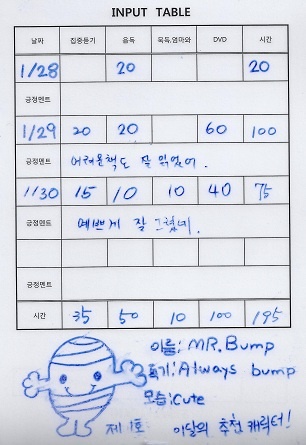 INPUT TABLE
날짜 집중듣기 음독 묵독,엄마와 DVD 시간
1/28 20 20
긍정멘트
1/29 20 20 60 100
긍정멘트 어려운책도 잘 읽었어.
1/30 15 10 10 40 75
긍정멘트 예쁘게 잘 그렸네.
긍정멘트
시간 35 50 10 100 195
이름: MR. Bump
특기: Always bump
모습: Cute
제 1호 이달의 추천 캐릭터!